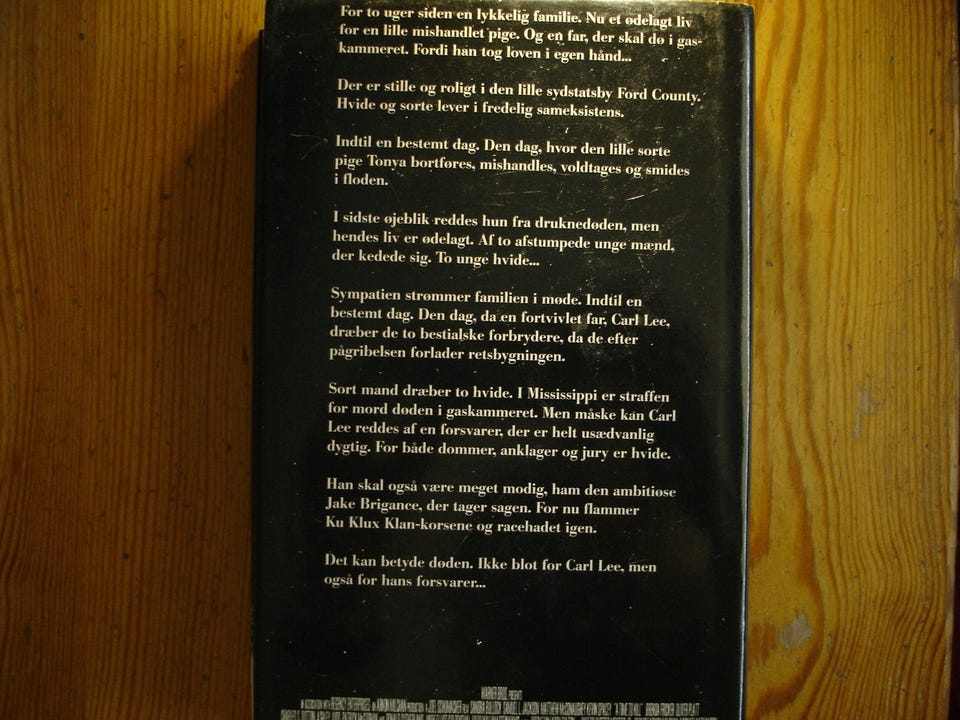 For to uger siden en lykkelig familie. Nu et ødelagt liv
for en lille mishandlet pige. Og en far, der skal dø i gas-
kammeret. Fordi han tog loven i egen hånd...
Der er stille og roligt i den lille sydstatsby Ford County.
Hvide og sorte lever i fredelig sameksistens.
Indtil en bestemt dag. Den dag, hvor den lille sorte
pige Tonya bortføres, mishandles, voldtages og smides
i floden.
I sidste øjeblik reddes hun fra druknedøden, men
hendes liv er ødelagt. Af to afstumpede unge mænd,
der kedede sig. To unge hvide...
Sympatien strømmer familien i møde. Indtil en
bestemt dag. Den dag, da en fortvivlet far, Carl Lee,
dræber de to bestialske forbrydere, da de efter
pågribelsen forlader retsbygningen.
Sort mand dræber to hvide. I Mississippi er straffen
for mord døden i gaskammeret. Men måske kan Carl
Lee reddes af en forsvarer, der er helt usædvanlig
dygtig. For både dommer, anklager og jury er hvide.
Han skal også være meget modig, ham den ambitiøse
Jake Brigance, der tager sagen. For nu flammer
Ku Klux Klan-korsene og racehadet igen.
Det kan betyde døden. Ikke blot for Carl Lee, men
også for hans forsvarer...
WARNER BROS. PRESENTS
IN ASSOCIATION WITH REGENCY ENTERPRISES AN ARNON MILCHAN A JOEL SCHUMACHER SANDRA BULLOCK SAMUEL L. JACKSON MATTHEW McCONAUGHEY KEVIN SPACEY "A TIME TO KILL" BRENDA FRICKER OLIVER PLATT